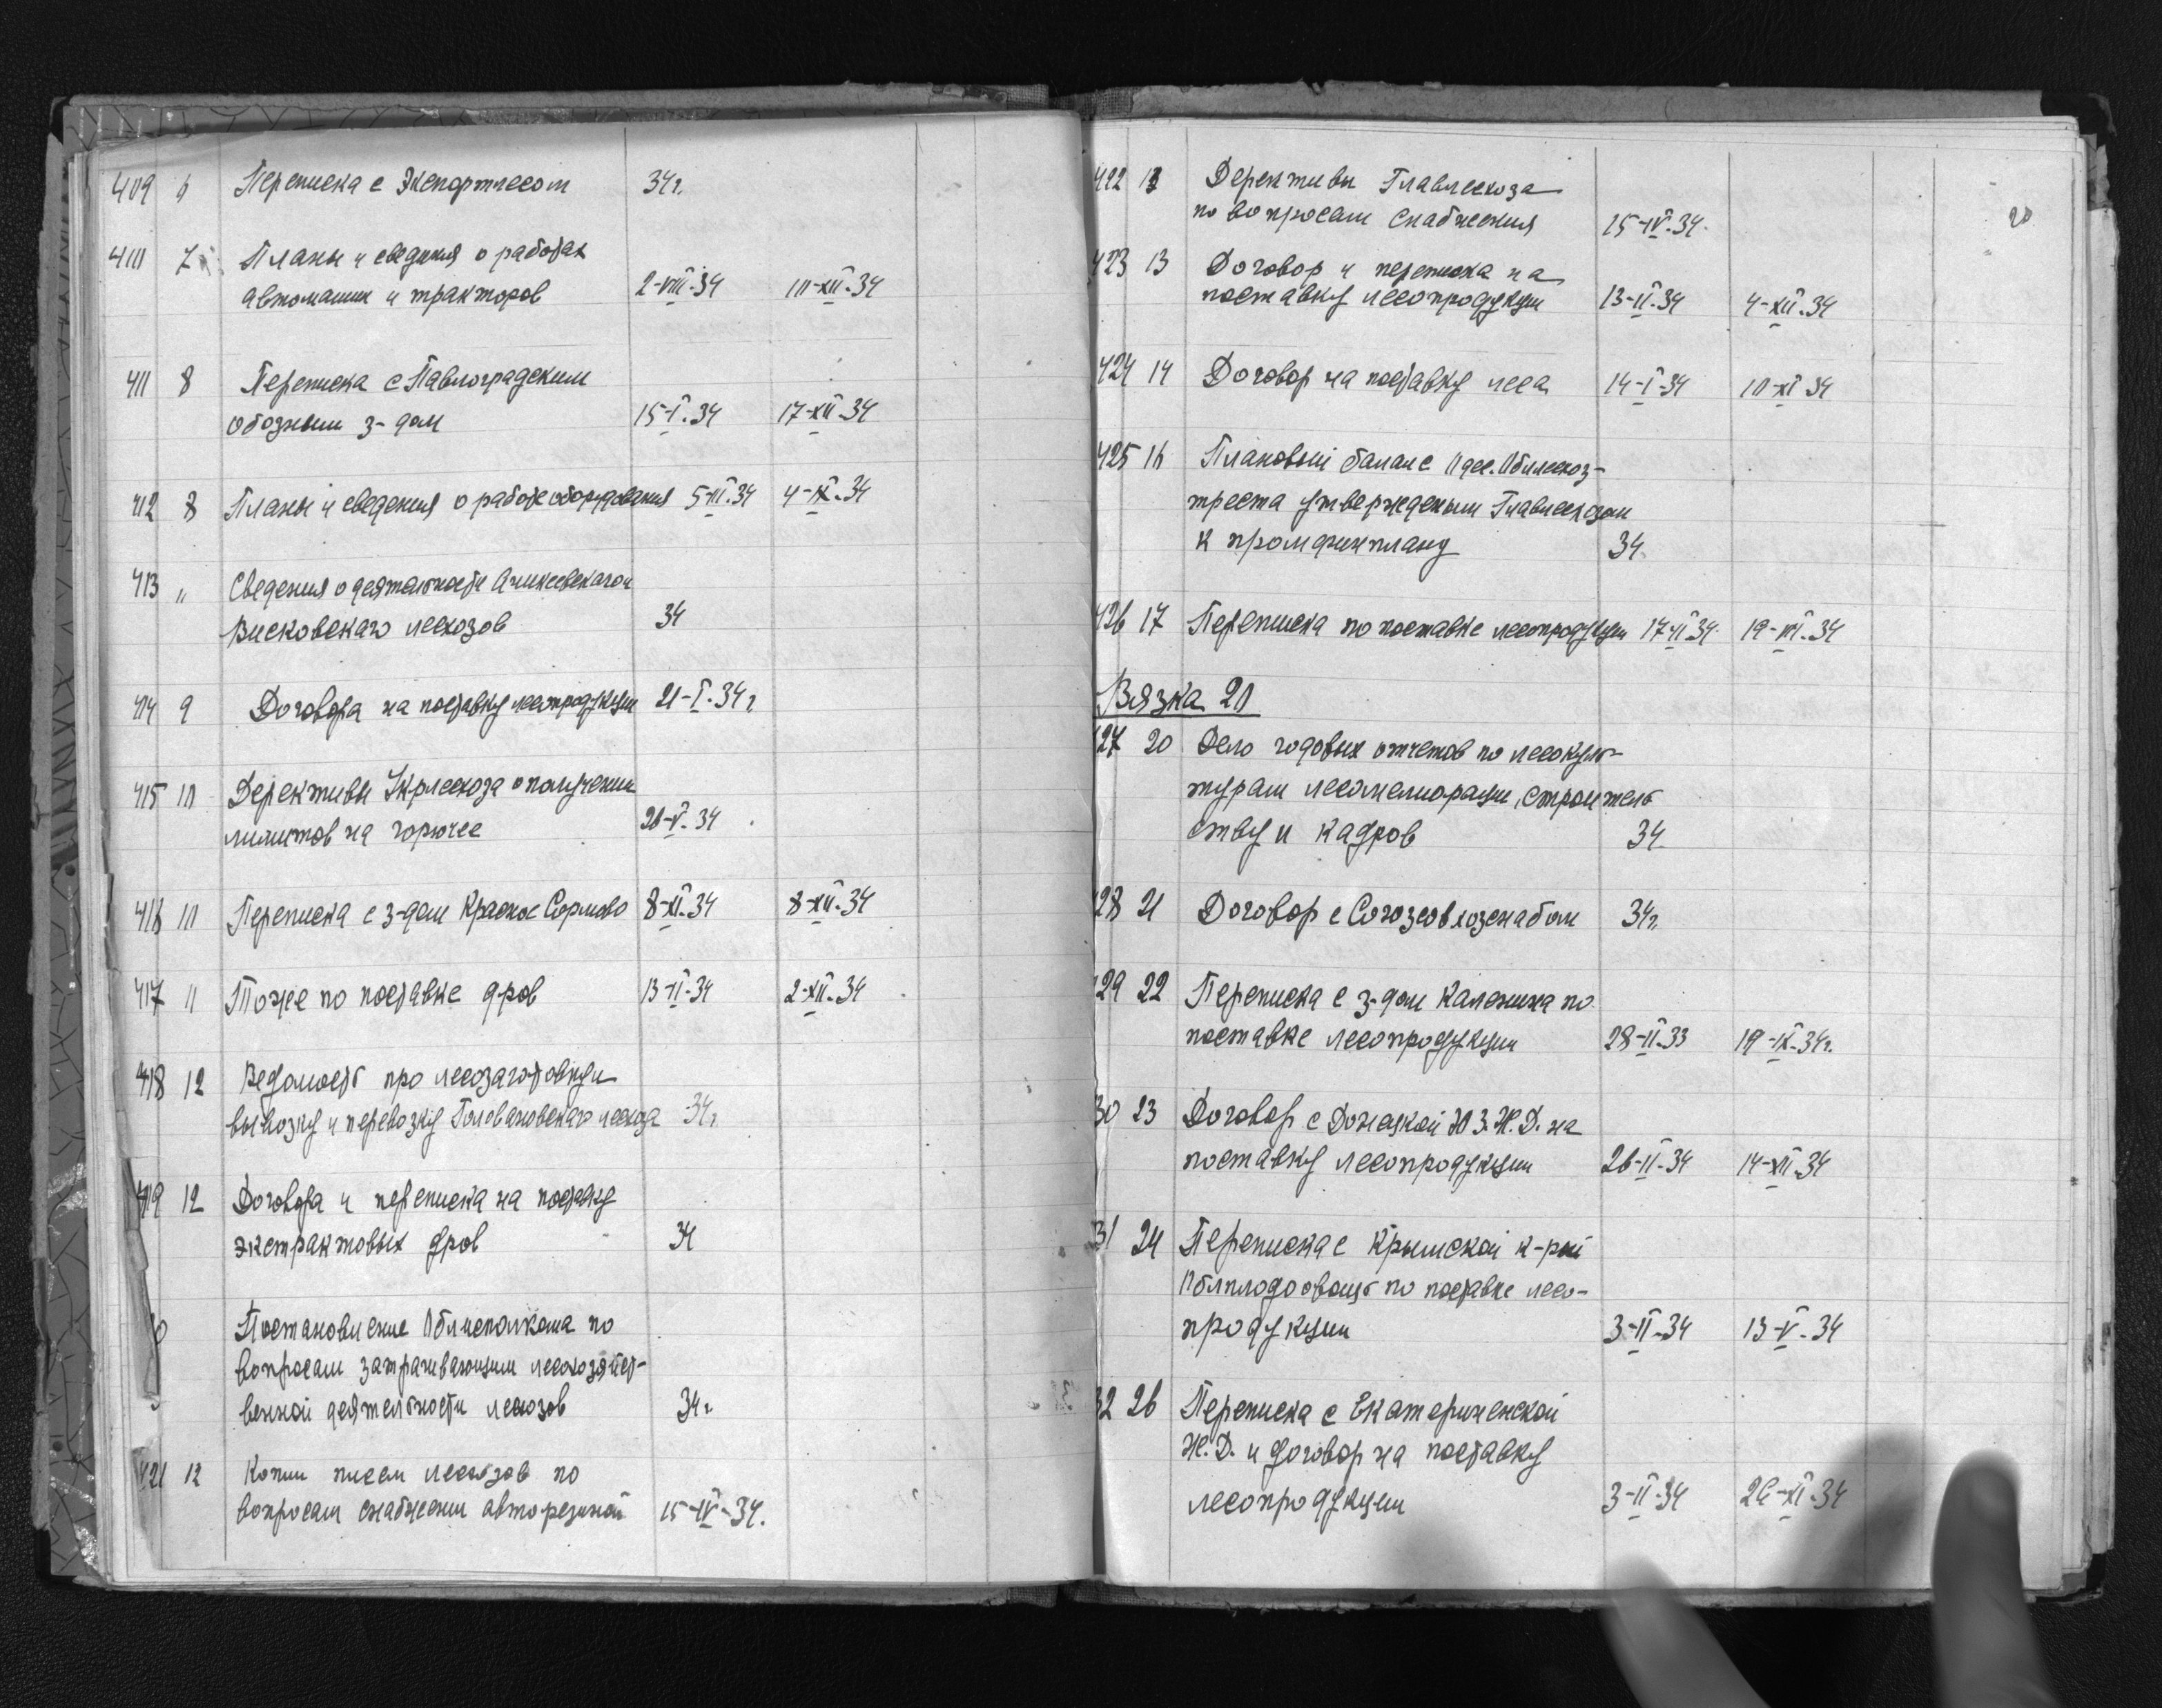 409 6 Переписка с Экспортлесом 34г.
410 7 Планы и сведения о работах
автомашин и тракторов 2-VIII-34 10-XII-34
411 8 Переписка с Павлоградским
обозным з-дом 15-I-34 17-XII-34
412 8 Планы и сведения о работе оборудования 5-III-34 4-IX-34
413 " Сведения о деятельности
Висковскаго лесхозов 34
414 9 Договора на поставку лесопродукции 21-I-34г
415 10 Дерективы Укрлесхоза о получении
лимитов на горючее 20-V-34
416 10 Переписка с з-дом Красное Сормово 8-XI-34 8-XII-34
417 11 Тоже по поставке дров 13-II-34 2-XII-34
418 12 Ведомость про лесозаготовку
вывозку и перевозку Головановскаго лесхоза 34г
419 12 Договора и переписка на поставку
экстрактовых дров 34
Постановление Облисполкома по
вопросам затрагивающим лесохозяйст-
венной деятельности лесхозов 34г
421 12 Копии писем лесхозов по
вопросам снабжении авторезиной 15-IV-34.
20
422 13 Дерективы Главлесхоза
по вопросам снабжения 15-IV-34.
423 13 Договор и переписка на
поставку лесопродукции 13-II-34 4-XII-34
424 14 Договор на поставку леса 14-I-34 10-XI 34
425 16 Плановый баланс Одес. Облесхоз-
треста утвержденым Главлесхозом
к промфинплану 34.
426 17 Переписка по поставке лесопродукции 17-II-34. 19-VIII-34
Вязка 20
427 20 Дело годовых отчетов по лесокуль-
турам лесомелиорации, строитель
ству и кадров 34.
428 21 Договор с Союзсовхозснабом 34г.
429 22 Переписка с з-дом Каленина по
поставке лесопродукции 28-II-33 19-IX-34г.
30 23 Договор с Донецкой Ю З. Ж. Д. на
поставку лесопродукции 26-II-34 14-XII-34
31 24 Переписка с Крымской к-рой
по поставке лесо-
продукции 3-II-34 13-V-34
32 26 Переписка с Екатериненской
Ж. Д. и договор на поставку
лесопродукции 3-II-34 26-XI-34